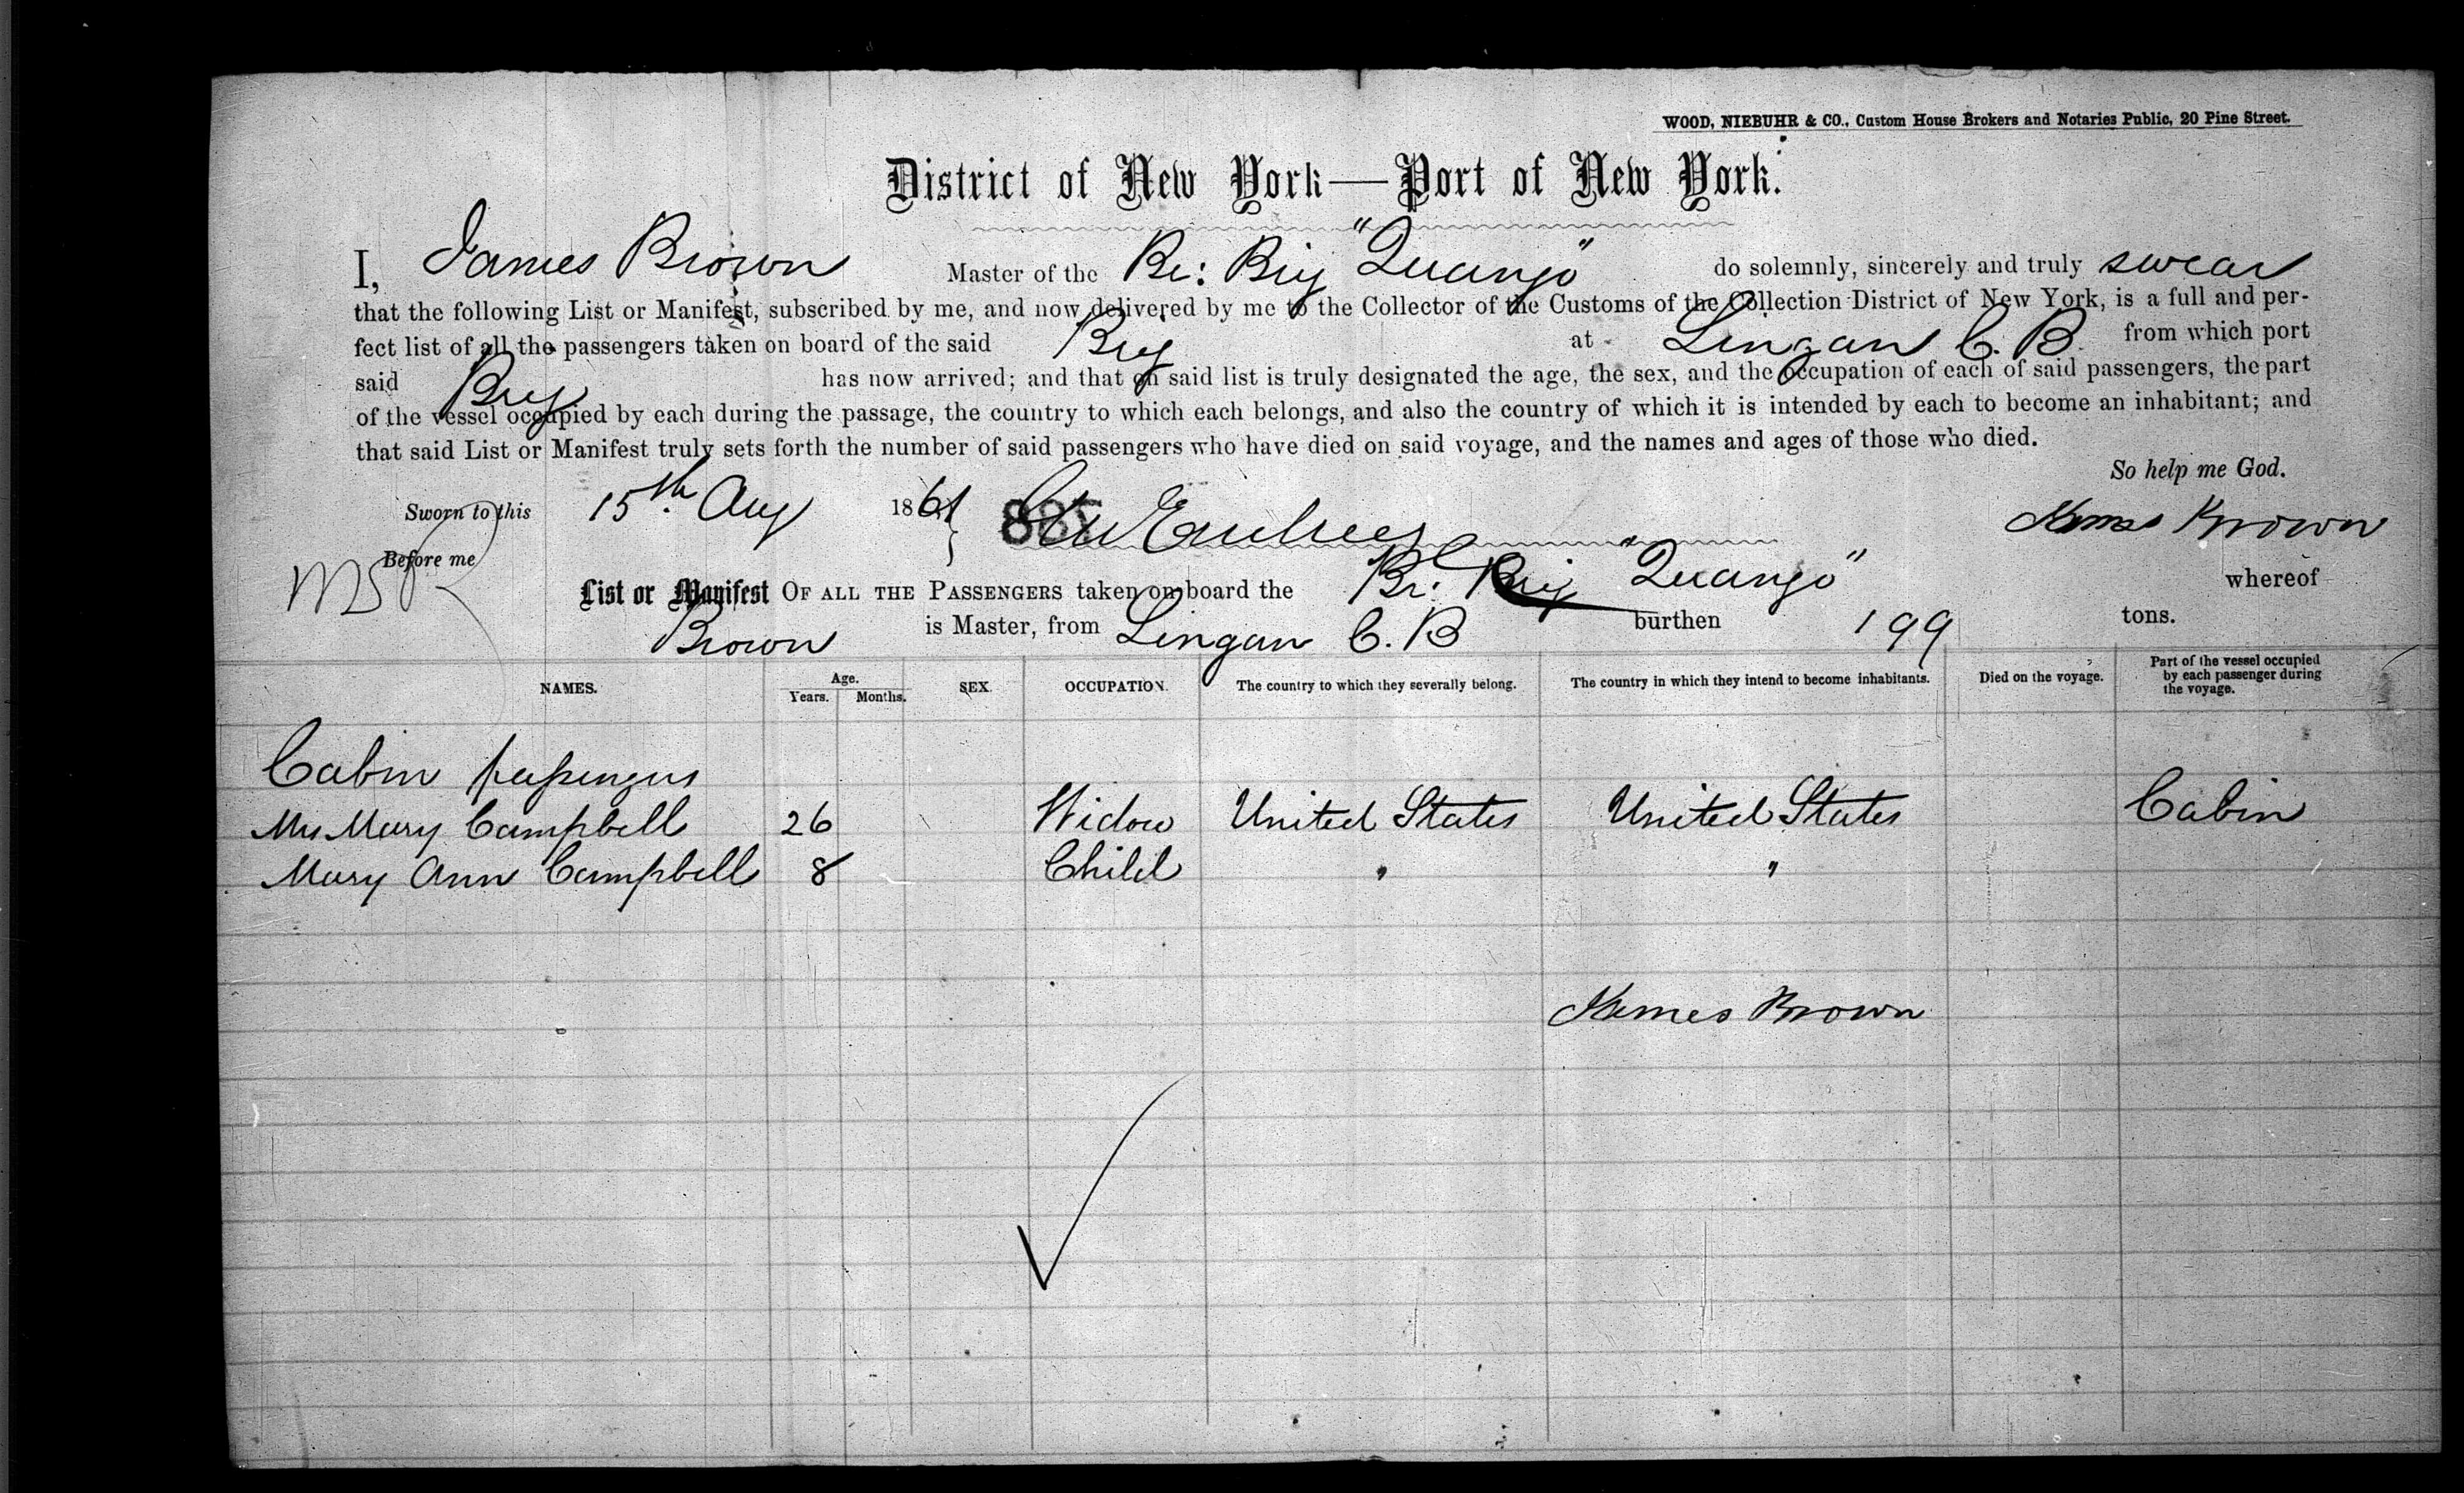 WOOD, NIEBUHR & CO., Custom House Brokers and Notaries Public, 20 Pine Street.
District of New York—Port of New York.
I, James Brown Master of the Br: Brig "Quango" do solemnly, sincerely and truly swear
that the following List or Manifest, subscribed by me, and now delivered by me to the Collector of the Customs of the Collection District of New York, is a full and per-
fect list of all the passengers taken on board of the said Brig at Lingan C. B. from which port
said Brig has now arrived; and that on said list is truly designated the age, the sex, and the occupation of each of said passengers, the part
of the vessel occupied by each during the passage, the country to which each belongs, and also the country of which it is intended by each to become an inhabitant; and
that said List or Manifest truly sets forth the number of said passengers who have died on said voyage, and the names and ages of those who died.
So help me God.
Sworn to this 15th Aug 1861
James Brown
Before me
List or Manifest OF ALL THE PASSENGERS taken on board the Br: Brig "Quango" whereof
Brown is Master, from Lingan C. B burthen 199 tons.
NAMES. Age. Years. Months. SEX. OCCUPATION. The country to which they severally belong. The country in which they intend to become inhabitants. Died on the voyage. Part of the vessel occupied by each passenger during the voyage.
Cabin passengers
Mrs Mary Campbell 26 Widow United States United States Cabin
Mary Ann Campbell 8 Child " "
James Brown